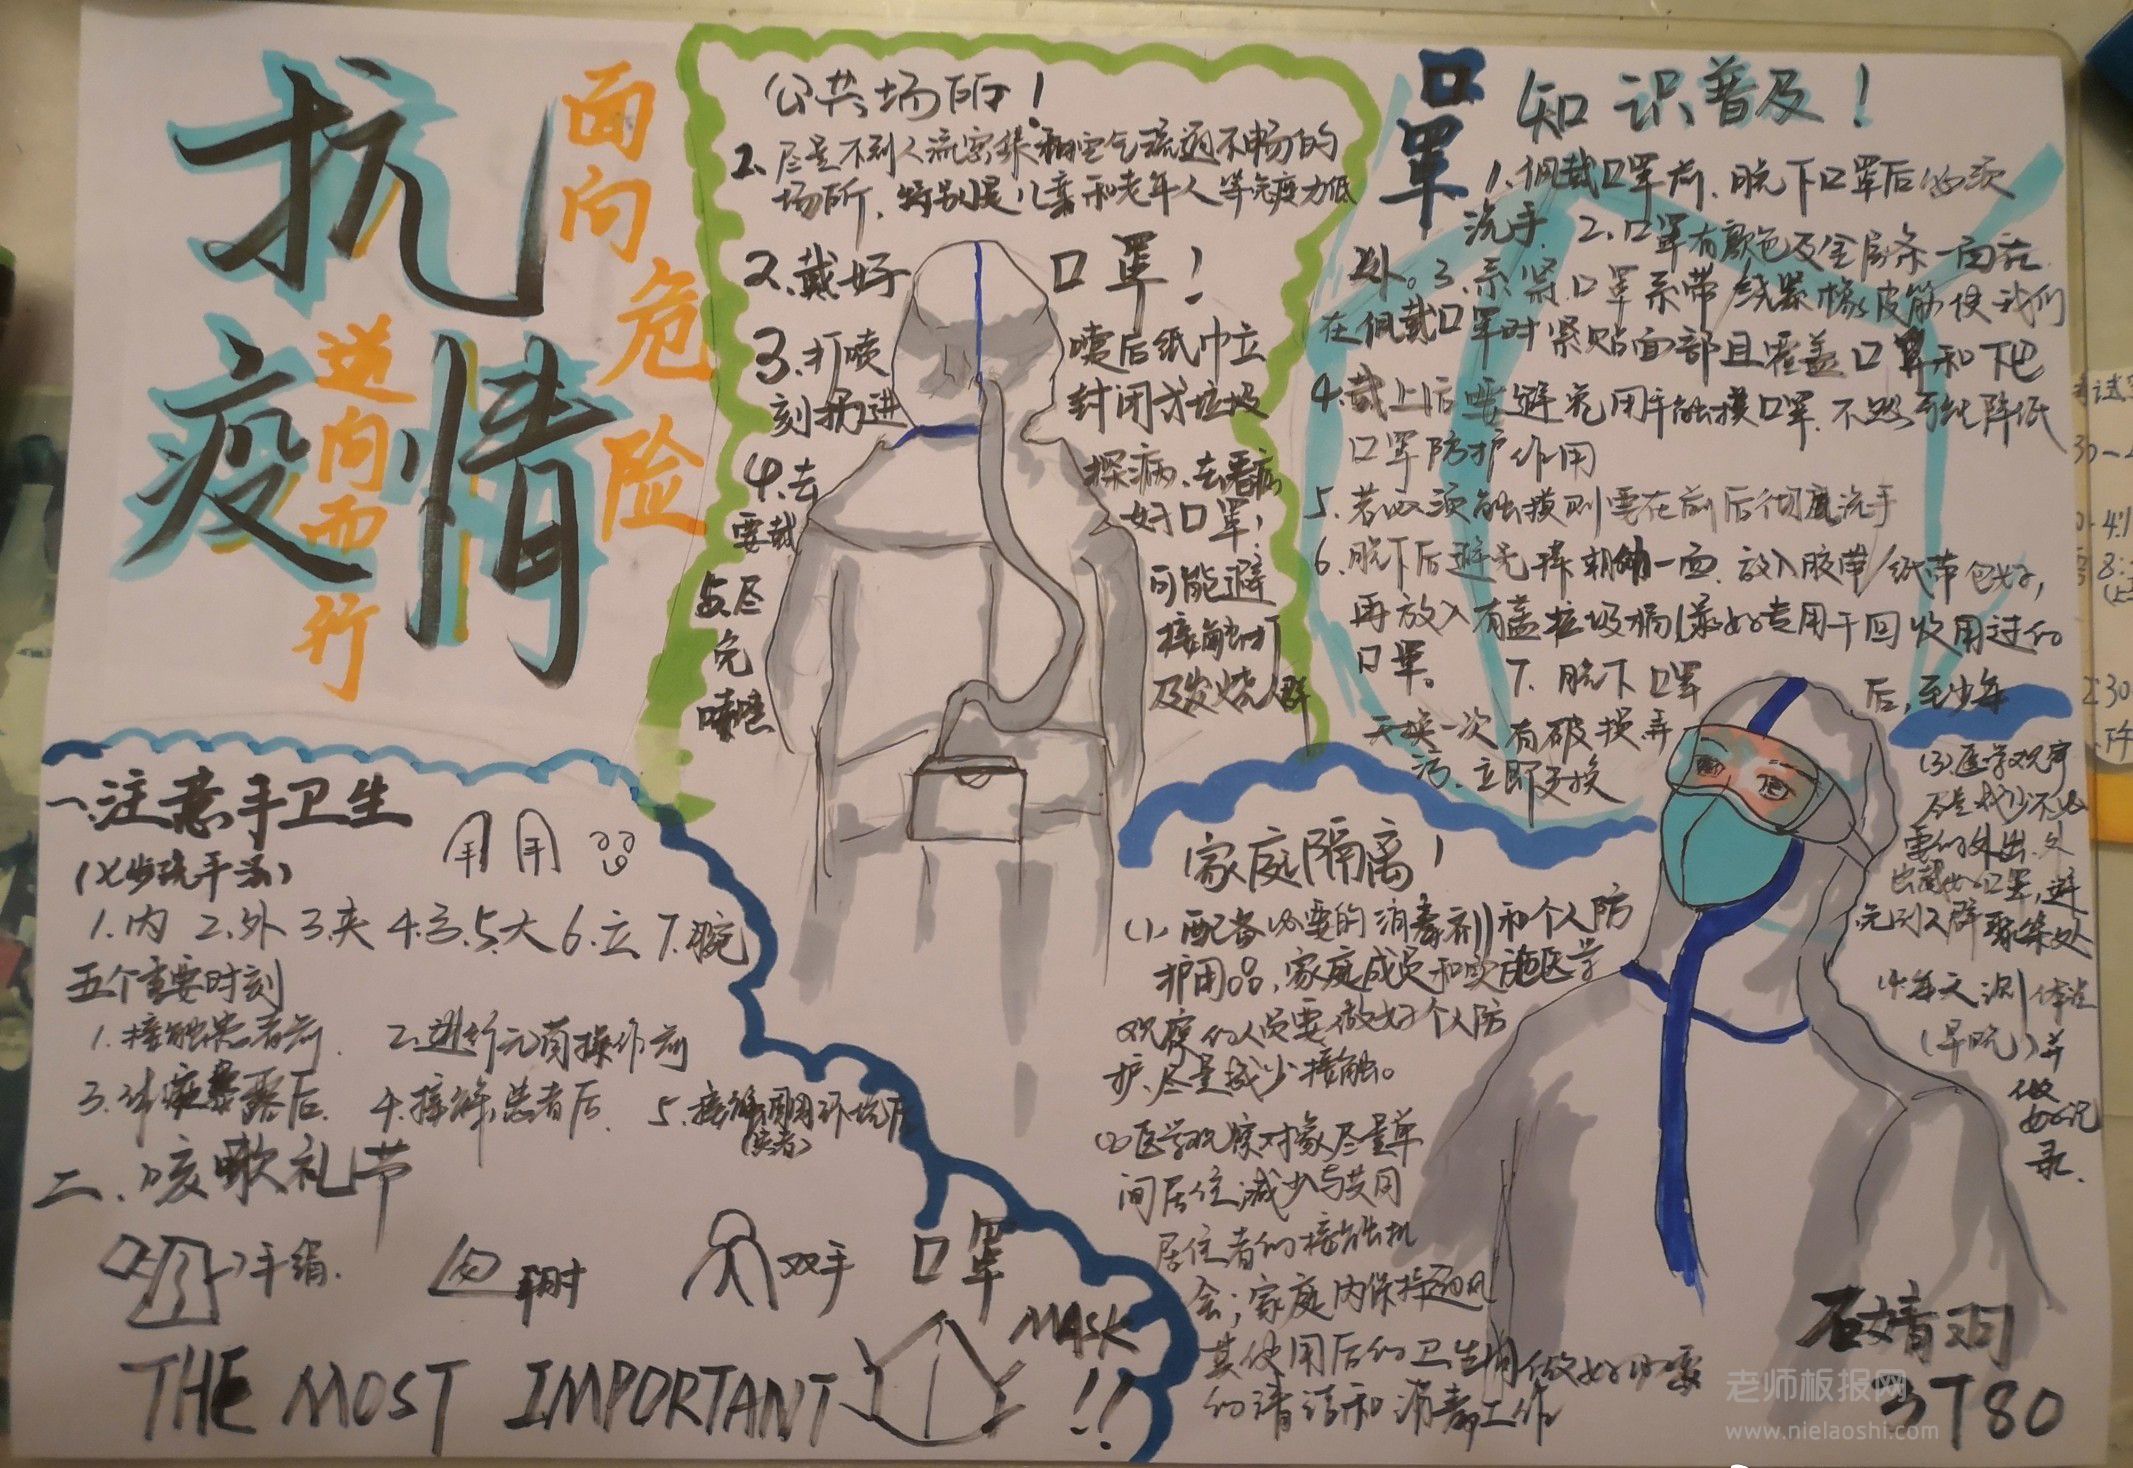 抗
疫情
面向危险
逆向而行
公共场所！
2、尽量不到人流密集和空气流通不畅的
场所、特别是儿童和老年人等免疫力低
2、戴好口罩！
3、打喷嚏后纸巾立
刻扔进封闭式垃圾
4、去探病、去看病
要戴好口罩！
5、尽可能避
免接触打
喷嚏及发烧人群
口罩知识普及！
1、佩戴口罩前、脱下口罩后必须
洗手、2、口罩有颜色及金属条一面在
外。3、系紧口罩系带/线紧橡皮筋使我们
在佩戴口罩时紧贴面部且覆盖口鼻和下巴
4、戴上后要避免用手触摸口罩、不然可能降低
口罩防护作用
5、若必须触摸则要在前后彻底洗手
6、脱下后避免摸朝外一面、放入胶带/纸带包好，
再放入有盖垃圾桶(最好专用于回收用过的
口罩。 7、脱下口罩后，至少每
天换一次有破损弄
污、立即更换
一、注意手卫生
(七步洗手法)
1、内 2、外 3、夹 4、弓、5、大 6、立 7、腕
五个重要时刻
1、接触患者前、 2、进行无菌操作前
3、体液暴露后、 4、接触患者后、 5、接触周围环境后
(患者)
二、咳嗽礼节
手绢、 手肘 双手 口罩
MASK
THE MOST IMPORTANT !!
家庭隔离！
(1)、配备必要的消毒剂和个人防
护用品，家庭成员和实施医学
观察的人员要做好个人防
护、尽量减少接触。
(2)医学观察对象尽量单
间居住减少与共同
居住者的接触机
会；家庭内保持通风
其使用后的卫生间做好必要
的清洁和消毒工作
(3)医学观察
尽量减少不必
要的外出、外
出戴好口罩，避
免到人群聚集处
(4)每天测体温
(早晚)并
做
好记
录、
石婧羽
3T80
老师板报网
www.nielaoshi.com